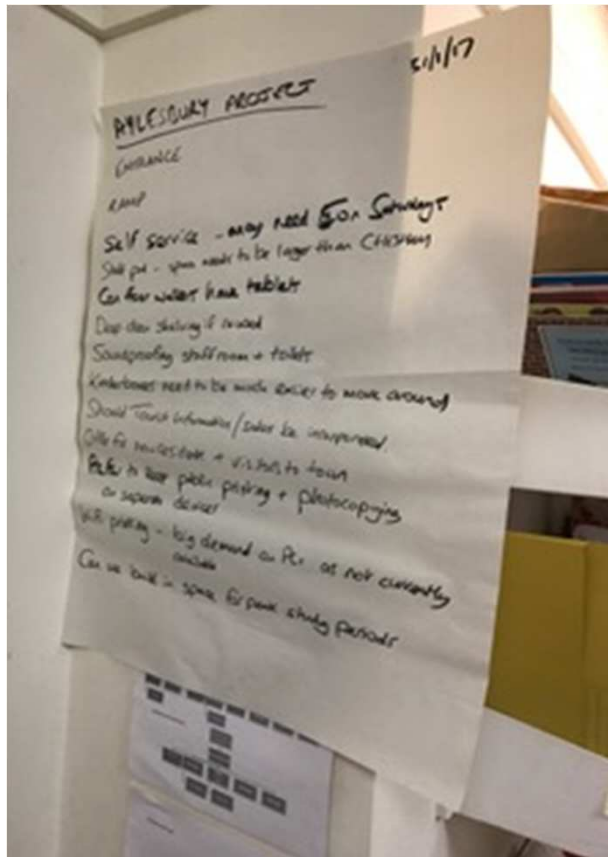 31/1/17
AYLESBURY PROJECT
ENTRANCE
RAMP
Self service - may need 5 on Saturdays
Staff pod - space needs to be larger than Chesham
Can floor walkers have tablets
Deep clean shelving if reused
Soundproofing staff room + toilets
Kinderboxes need to be much easier to move around
Should Tourist Information / be incorporated.
for + visitors to town
Prefer to keep public printing + photocopying
on separate devices
Wifi printing - big demand on PCs as not currently
available
Can we build in space for peak study periods